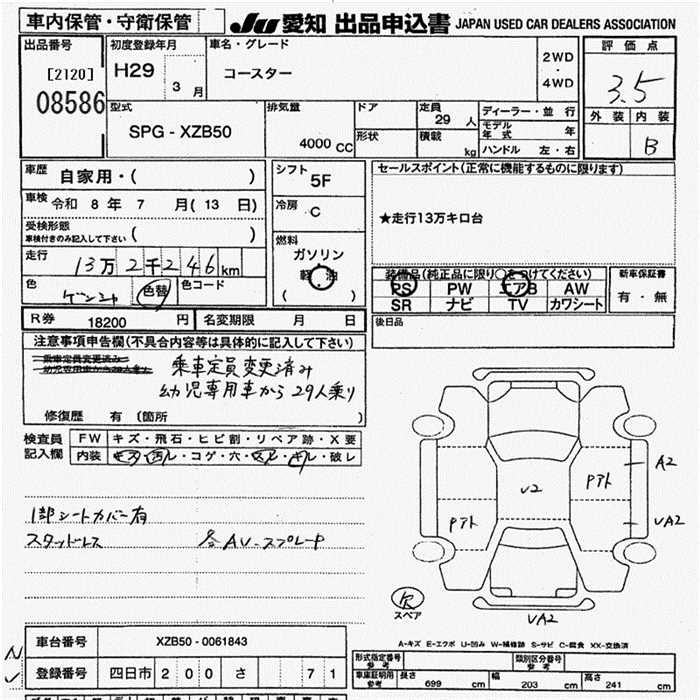 車内保管・守衛保管
JU 愛知 出品申込書 JAPAN USED CAR DEALERS ASSOCIATION
出品番号
[2120]
08586
初度登録年月
H29
3 月
車名・グレード
コースター
2WD
・
4WD
評価点
3.5
外装 内装
B
型式
SPG - XZB50
排気量
4000 CC
ドア
形状
定員
29 人
積載
kg
ディーラー・並行
モデル年式 年
ハンドル 左・右
車歴
自家用・( )
車検 令和 8 年 7 月(13 日)
受検形態
車検付きのみ記入して下さい ( )
走行
13万2千246km
色
色替
色コード
シフト
5F
冷房
C
燃料
ガソリン
軽油
( )
セールスポイント(正常に機能するものに限ります)
★走行13万キロ台
装備品(純正品に限り○をつけてください)
PS PW エアB AW
SR ナビ TV カワシート
新車保証書
有・無
R券 18200 円
名変期限 月 日
後日品
注意事項申告欄(不具合内容等は具体的に記入して下さい)
乗車定員変更済み
幼児専用車から29人乗り
乗車定員変更済み
幼児専用車から29人乗り
修復歴 有 (箇所 )
検査員
記入欄
FW キズ・飛石・ヒビ割・リペア跡・X要
内装 キズ・汚レ・コゲ・穴・スレ・キレ・破レ
1部シートカバー有
スタッドレス
A2
Pアト
U2
Pアト
UA2
スペア
UA2
A-キズ E-エクボ U-凹み W-補修跡 S-サビ C-腐食 XX-交換済
車台番号 XZB50 - 0061843
登録番号 四日市 200 さ 71
形式指定番号
参考
類別区分番号
参考
車庫証明用
参考
長さ 699 cm
幅 203 cm
高さ 241 cm